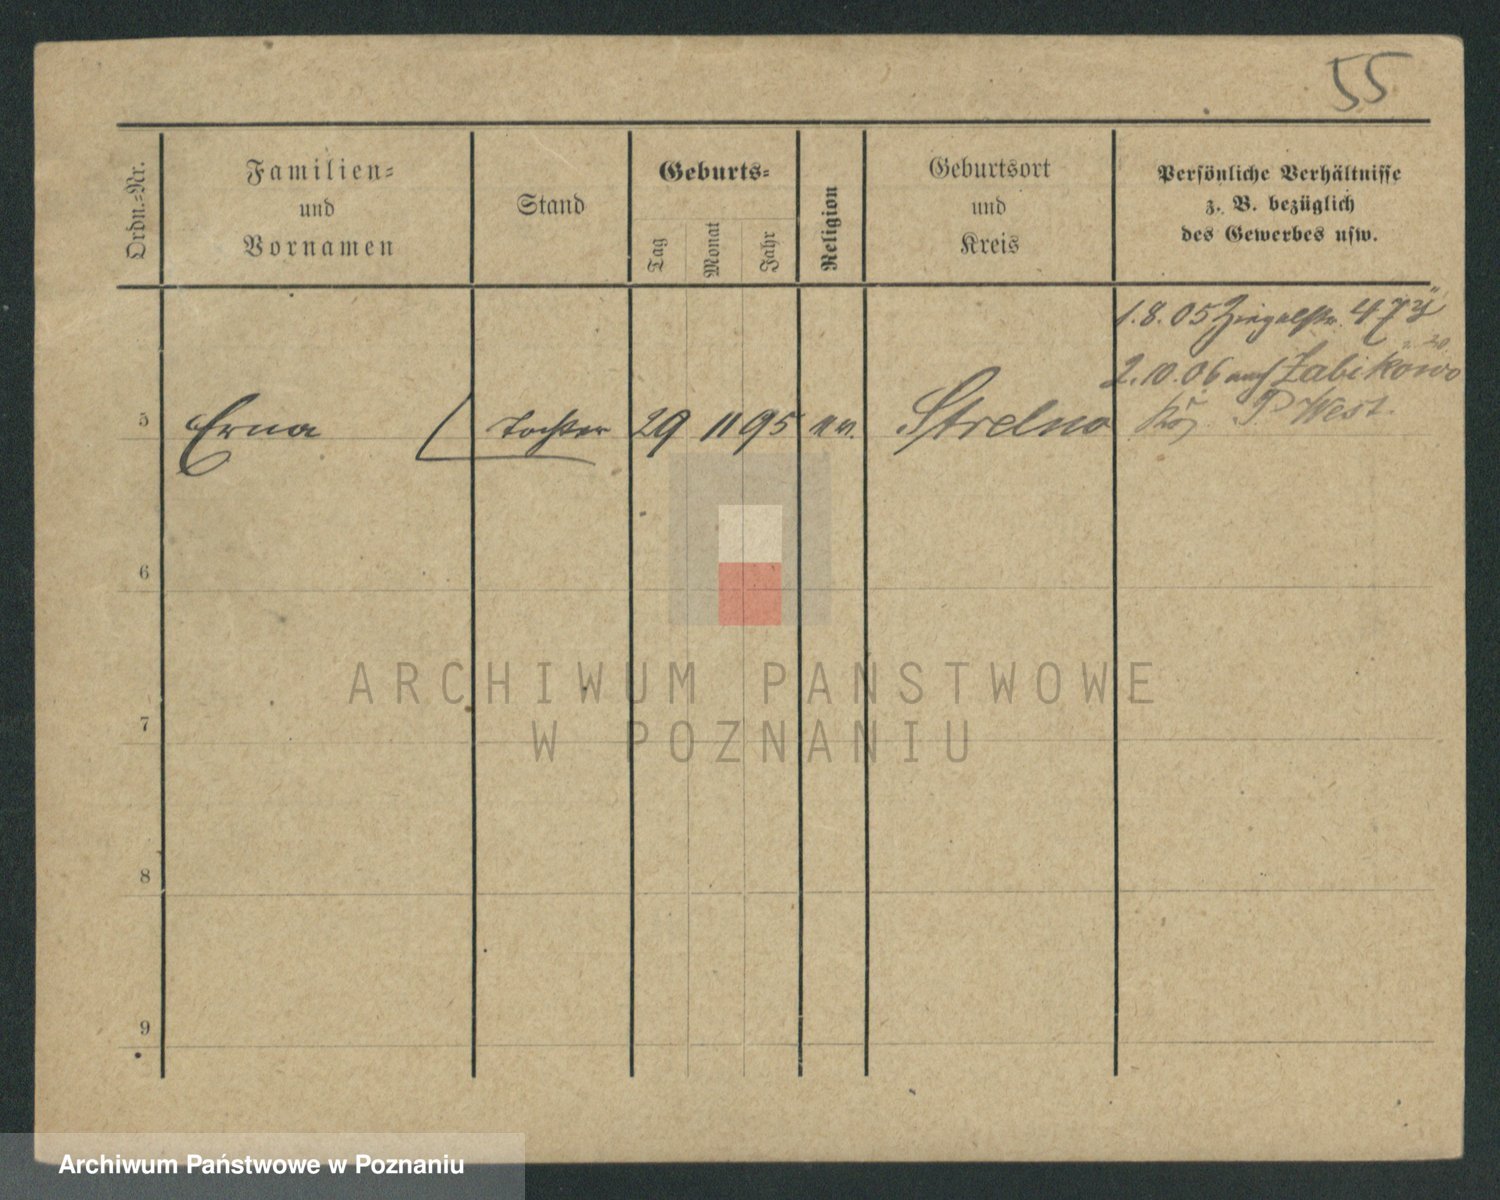 55
Ordn.-Nr.
Familien-
und
Vornamen
Stand
Geburts-
Tag
Monat
Jahr
Religion
Geburtsort
und
Kreis
Persönliche Verhältnisse
z. B. bezüglich
des Gewerbes usw.
1.8.05 47
2.10.06 nach Zabikowo
P West.
5 Erna Tochter 29 11 95 ev. Strelno
6
7
8
9
ARCHIWUM PAŃSTWOWE
W POZNANIU
Archiwum Państwowe w Poznaniu